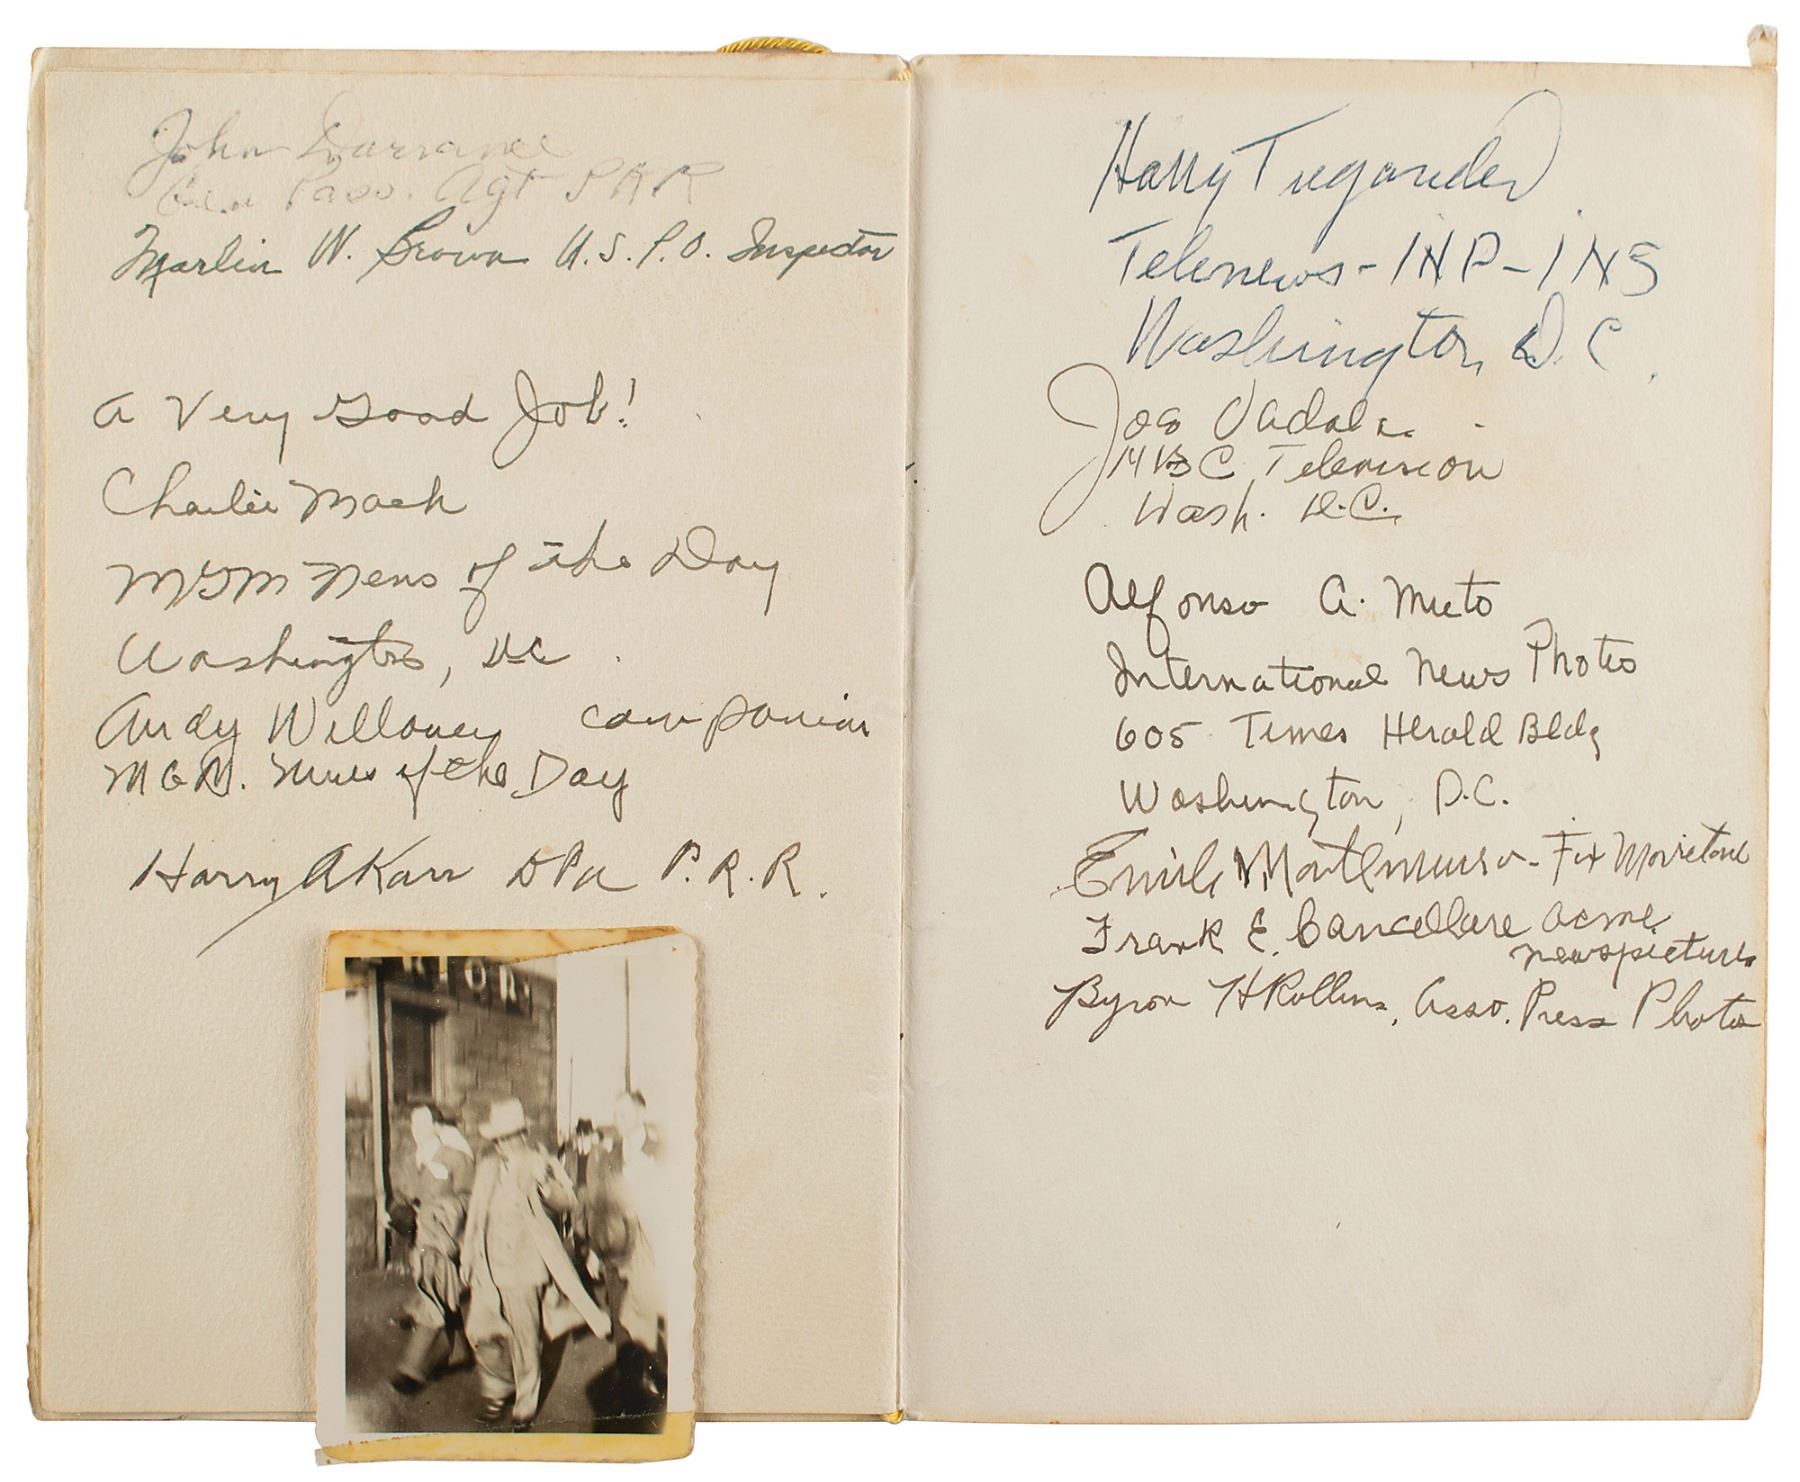 John Dorrance
Gen. Pass. Agt PRR
Marlin W. Brown U.S.P.O. Inspector
A Very Good Job!
Charlie Mack
MGM News of the Day
Washington, DC.
Andy Willoney companion
M.G.M. News of the Day
Harry A Karr DPA P.R.R.
Harry Tugander
Telenews - INP - INS
Washington, D.C.
Joe Vadala
NBC Television
Wash. D.C.
Alfonso A. Muto
International News Photos
605 Times Herald Bldg
Washington, D.C.
Emile Montemurro - Fox Movietone
Frank E. Cancellare Acme
newspictures
Byron H Rollins, Asso. Press Photos